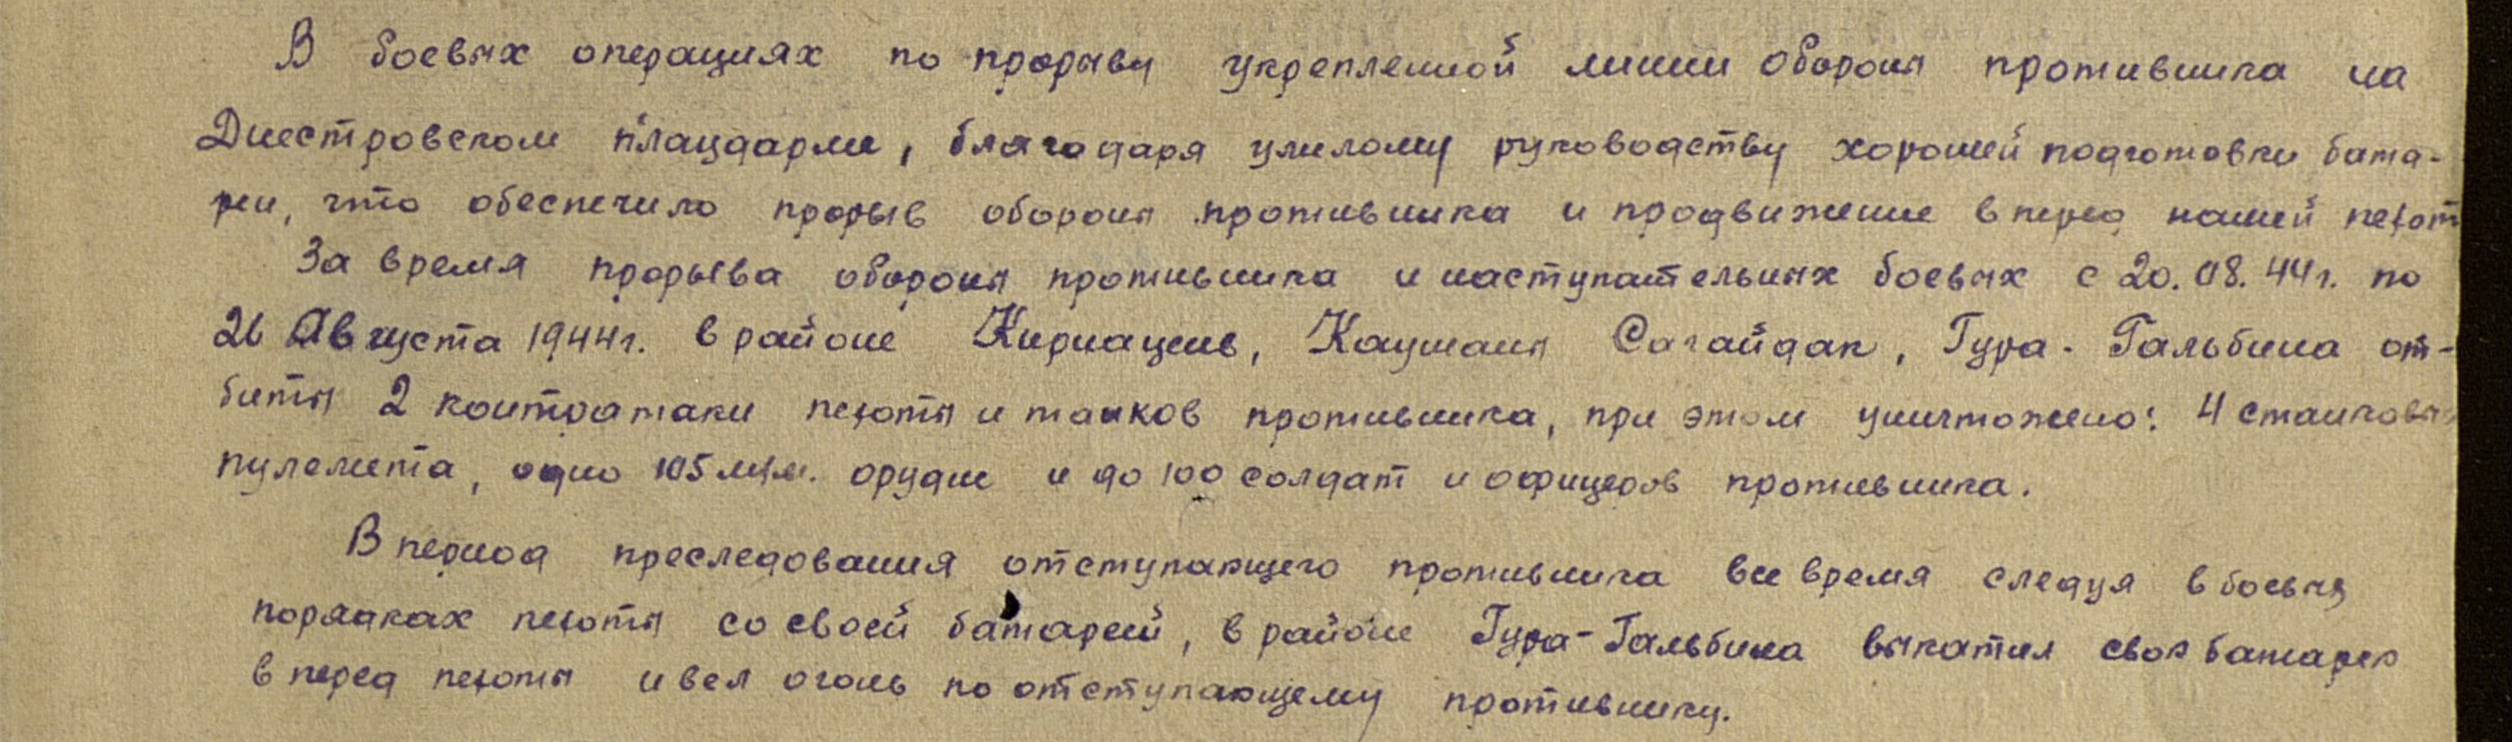 В боевых операциях по прорыву укрепленной линии обороны противника на
Днестровском плацдарме, благодаря умелому руководству хорошей подготовки бата-
реи, что обеспечило прорыв обороны противника и продвижение вперед нашей пехот
За время прорыва обороны противника и наступательных боевых с 20.08.44г. по
26 Августа 1944г. в районе Каушаны Сагайдак, Гура-Гальбина от-
биты 2 контратаки пехоты и танков противника, при этом уничтожено: 4 станковы
пулемета, одно 105 м/м. орудие и до 100 солдат и офицеров противника.
В период преследования отступающего противника все время следуя в боевых
порядках пехоты со своей батареей, в районе Гура-Гальбина выкатил свою батарею
вперед пехоты и вел огонь по отступающему противнику.